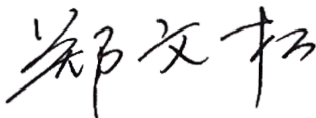 郑文松